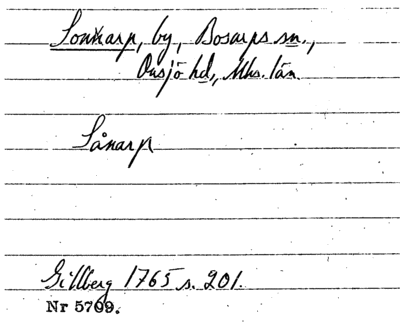 Sonnarp, by, Bosarps sn.,
Onsjö hd., Mhs. län.
Sånarp
Gillberg 1765 s. 201.
Nr 5709.